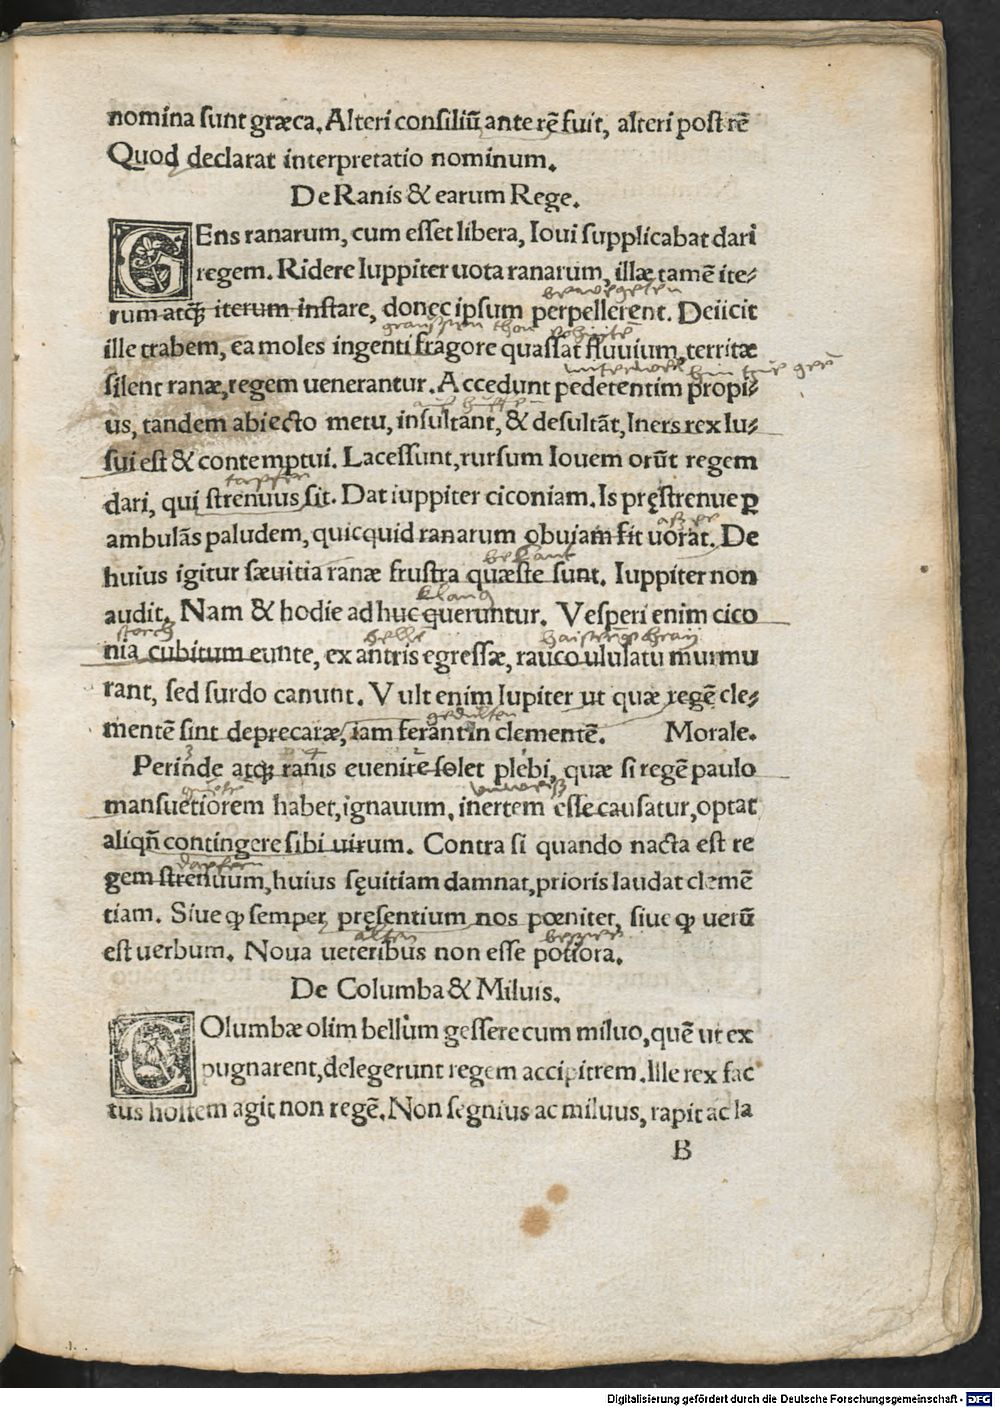 nomina sunt græca. Alteri consiliū ante rē fuit, alteri post rē
Quod declarat interpretatio nominum.
De Ranis & earum Rege.
GEns ranarum, cum esset libera, Ioui supplicabat dari
regem. Ridere Iuppiter uota ranarum, illæ tamē ite⸗
rum atqꝫ iterum instare, donec ipsum perpellerent. Deiicit
ille trabem, ea moles ingenti fragore quassat fluuium, territæ
silent ranæ, regem uenerantur. Accedunt pedetentim propi⸗
us, tandem abiecto metu, insultant, & desultāt, Iners rex lu⸗
sui est & contemptui. Lacessunt, rursum Iouem orūt regem
tapfer
dari, qui strenuus sit. Dat iuppiter ciconiam. Is pręstrenue ꝑ
ambulās paludem, quicquid ranarum obuiam fit uorat. De
huius igitur sæuitia ranæ frustra quæstæ sunt. Iuppiter non
klang
audit. Nam & hodie ad huc queruntur. Vesperi enim cico
storch
nia cubitum eunte, ex antris egressæ, rauco ululatu murmu
rant, sed surdo canunt. Vult enim Iupiter ut quæ regē cle⸗
gedulten
mentē sint deprecatæ, iam ferant in clementē. Morale.
Perinde atqꝫ ranis euenire solet plebi, quæ si regē paulo
mansuetiorem habet, ignauum, inertem esse causatur, optat
aliqñ contingere sibi uirum. Contra si quando nacta est re
dapfern
gem strenuum, huius sęuitiam damnat, prioris laudat clemē
tiam. Siue ꝙ semper pręsentium nos pœnitet, siue ꝙ uerū
alten
est uerbum. Noua ueteribus non esse potiora.
De Columba & Miluis.
COlumbæ olim bellum gessere cum miluo, quē ut ex
pugnarent, delegerunt regem accipitrem. Ille rex fac
tus hostem agit non regē. Non segnius ac miluus, rapit ac la
B
Digitalisierung gefördert durch die Deutsche Forschungsgemeinschaft - DFG